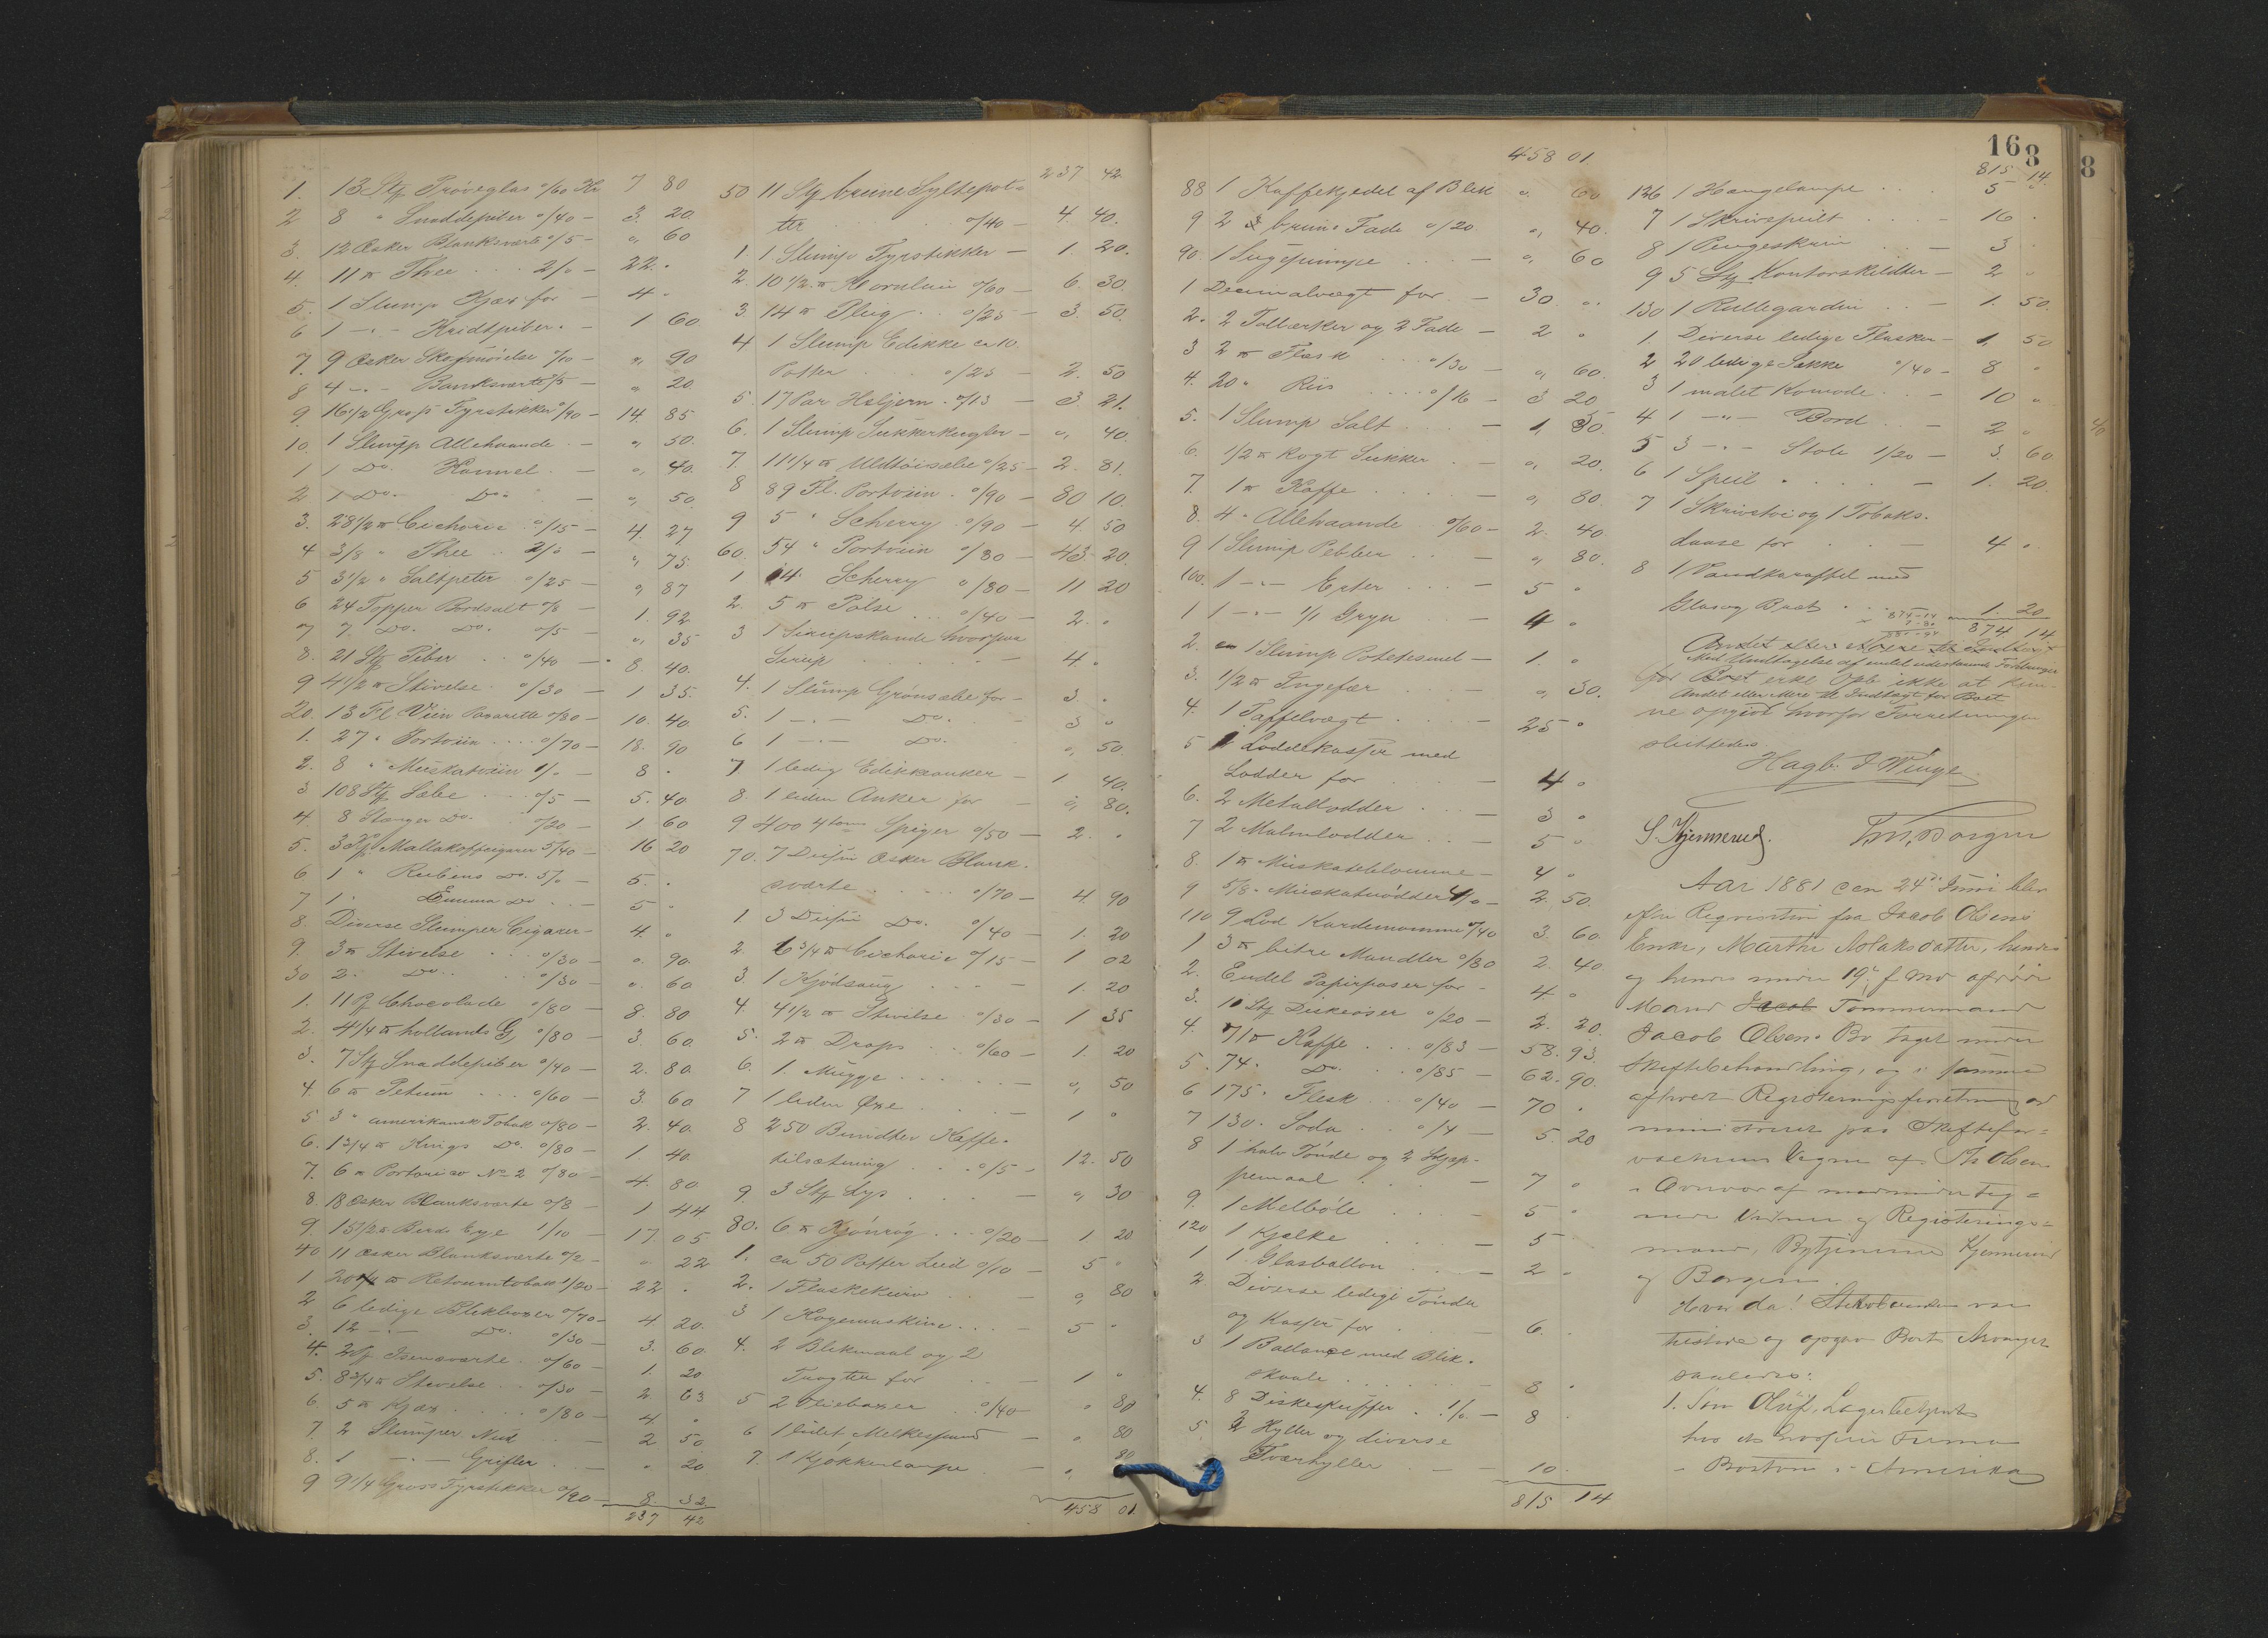 1. 13 Stk Prøveglas o/60 Kr 7 80
2 8 " Snaddepiber o/40 - 3. 20.
3. 12 Æsker Blanksværte o/5 - " 60
4. 11 ℔ Thee 2/o - 22. "
5. 1 Slump Kjæx for - 4 "
6 1 -"- Kridtpiber. - 1 60
7. 9 Æsker Skosmørelse o/10 - " 90
8 4 -"- Blanksværte o/5 - " 20
9. 16 1/2 Gross Fyrstikker o/90 - 14. 85
10. 1 Slump Allehaande - " 50.
1 1 Do. Kannel. - " 40.
2 1 Do. Do. - " 50.
3. 28 1/2 ℔ Cichorie o/15 - 4. 27
4 3/8 " Thee 2/o - " 75
5 3 1/2 " Saltpeter o/25 - " 87
6 24 Topper Bordsalt o/8 - 1. 92
7 7. Do. Do. o/5 - " 35
8. 21 Stk Piber o/40 - 8. 40.
9 4 1/2 ℔ Stivelse o/30 - 1 35.
20. 13 Fl. Viin Paxarette o/80 - 10. 40.
1. 27 " Portviin o/70 - 18. 90
2. 8 " Muskatviin 1/o - 8 "
3 108 Stk Sæbe o/5 - 5. 40
4. 8 Stænger Do. o/20 - 1 60
5. 3 Kp. Mallakoffcigarer 5/40 - 16 20
6 1 " Rubens Do. 5/o - 5. "
7 1 " Emma Do - 5 "
8. Diverse Slumper Cigarer - 4. "
9. 3 ℔ Stivelse o/30 - " 90.
30 2. Do. o/30 - " 60
1. 11 Chocolade o/80 - 8. 80
2. 4 1/4 ℔ hollands o/80 - 3. 60
3. 7 Stk Snaddepiber o/40 - 2. 80.
4. 6 ℔ Petum o/60 - 3. 60
5 3 " amerikansk Tobak o/80 - 2. 40.
6. 1 3/4 ℔ Kings Do. o/80 - 1. 40.
7. 6 ℔ Portorico No 2 o/80 - 4. 80
8. 18 Æsker Blanksværte o/8 - 1 44
9. 15 1/2 ℔ Birds Eye 1/10 - 17. 05
40 11 Æsker Blanksværte o/2 - " 22
1 ℔ 1/10 - 22 "
2 6 ledige Blikboxer o/70 - 4. 20.
3. 12 -"- Do. o/30 - 3. 60.
4. 2 Isensværte. o/60 - 1. 20
5. 8 3/4 ℔ Stivelse o/30 - 2. 63
6. 5 ℔ Kjæx o/80 - 4 "
7. 2 Slumper - 2. 50
8. 1 -"- Grifler - " 20
9 9 1/4 Gross Fyrstikker o/90 - 8. 32
237 42
237 42
50 11 Stk brune Syltepot-
ter o/40 - 4. 40.
1. 1. Slump Fyrstikker - 1. 20.
2. 10 1/2 ℔ o/60 - 6. 30.
3 14 ℔ Pliig o/25 - 3. 50.
4 1 Slump Edikke ca 10.
Potter o/25 - 2. 50
5. 17 Par o/13 - 3 21.
6. 1 Slump Sukkerkugler - " 40.
7. 11 1/4 ℔ Uldtøisæbe o/25 - 2. 81.
8 89 Fl. Portviin o/90 - 80 10.
9 5 " Scherry o/90 - 4. 50
60. 54 " Portviin o/80 - 43. 20.
1 14 Scherry o/80 - 11 20
2. 5 ℔ Pølse o/40 - 2. "
3 1 Sirupskande hvorpaa
Sirup - 4 "
4. 1 Slump Grønsæbe for - 3 "
5. 1 -"- Do. - 3 "
6 1 -"- Do. " 50.
7 1 ledig Edikkeanker - 1. 40.
8. 1 liden Anker for - " 80.
9 400 4 toms Spiger o/50 - 2. "
70. 7 Dusin Æsker Blank-
sværte o/70 - 4. 90
1 3 Dusin Do. o/40 - 1. 20
2. 6 3/4 ℔ Cichorie o/15 - 1 02
3. 1 Kjødsaug - 1. 20
4. 4 1/2 ℔ Stivelse o/30 - 1 35
5. 2 ℔ Drops o/60 - 1. 20
6. 1. Mugge - " 50
7 1 liden Øxe - 1 "
8 250 Bundter Kaffe-
tilsætning o/5 - 12. 50
9. 3 Stk Lys - " 30
80. 6 ℔ Kjønrøg o/20 - 1. 20
1. ca 50 Potter Lud o/10 - 5 "
2. 1 Flaskekurv - " 80
3 1 Kogemaskine - 5 "
4. 2 Blikmaal og 2
Tragter for - 1 "
5 2 Oliebaxer o/40 - " 80
6 1 lidet Melkespand - " 80
7. 1 Kjøkkenlampe - " 80
458 01
458 01
88 1 Kaffekjedel af Blik " 60
9 2 brune Fade o/20 " 40.
90. 1 Sugepumpe - " 60
1 Decimalvægt for - 30. "
2. 2 Tallærker og 2 Fade - 2 "
3 2 ℔ Flæsk o/30 - " 60.
4. 20 " Riis o/16 - 3 20
5. 1 Slump Salt - 1. 30.
6. 1/2 ℔ Kogt Sukker - " 20.
7. 1 ℔ Kaffe - " 80.
8. 4 " Allehaande o/60 - 2. 40
9 1 Slump Pebber - " 80.
100. 1 -"- Erter - 5 "
1 1 -"- 1/1 Gryn - 4 "
2. 1 Slump Potetesmel - 1. "
3. 1/2 ℔ Ingefær - " 30.
4. 1 Taffelvægt - 25 "
5 2 Loddekasser med
Lodder for - 4 "
6. 2 Metallodder - 3 "
7 2 Malmlodder - 5 "
8. 1 ℔ Muskatblomme - 4 "
9 5/8 " Muskatnødder 4/o - 2. 50.
110 9 Lod Kardemomme o/40 3. 60.
1 3 ℔ bitre Mandler o/80 2. 40.
2. Endel Papirposer for - 4 "
3. 11 Stk Diskeoser o/20 - 2. 20.
4. 71 ℔ Kaffe o/83 - 58. 93
5. 74. Do. o/85 - 62. 90.
6 175 " Flesk o/40 - 70 "
7 130 " Soda o/4 - 5. 20
8 1 halv Tønde og 2 Skjæp-
pemaal - 7 "
9. 1 Melbøle - 5 "
120 1 Kjælke - 5 "
1 1 Glasballon - 2 "
2. Diverse ledige Tønder
og Kasser for - 6. "
3 1 Ballance med Blik-
skaale - 8 "
4. 8 Diskeskuffer 1/o - 8 "
5. 2 Hyller og diverse
Tværhyller - 10.
815 14
168
8
815 14
126 1 Hængelampe 5 "
7 1 Skrivepult - 16 "
8 1 Pengeskrin - 3 "
9 5 Stk Kontorskildter - 2 "
130 1 Rullegardin - 1. 50.
1. Diverse ledige Flasker - 1, 50
2 20 ledige Sække o/40 - 8 "
3 1 malet Komode - 10 "
4 1 -"- Bord - 2 "
5 3 -"- Stole 1/20 - 3. 60
6 1 Speil - 1. 20.
7 1 Skrivetøi og 1 Tobaks-
daase for - 4 "
8 1 Vandkaraffel med
Glas og Bret 1. 20
874 14
Med Undtagelse af endel udestaaende Fordringer
for Boet ikke at kun-
Andet eller Mere til Indtægt for Boet
ne opgives hvorfor Forretningen
sluttedes
Hagb. J Winge
S. Kjennerud. Borgen
Aar 1881 den 24de Juni blev
efter Reqvisition fra Jacob Olsens
Enke, Marthe Aslaksdatter, hendes
og hendes under 19. f. Md afdøde
Mand Jacob Tømmermand
Jacob Olsens Bo taget under
Skiftebehandling, og i samme
afholdt Registreringsforretning ad
ministreret paa Skiftefor-
valterens Vegne af Olsen
i Overvær af medundertegn-
ede Vidner og Registrerings-
mænd, Bytjenerne Kjennerud
og Borgen.
Hvor da! Stervboenken var
tilstede og opgav Boets Arvinger
saaledes:
1. Søn Oluf, Lagerbetjent
hos et Firma
i Boston i Amerika